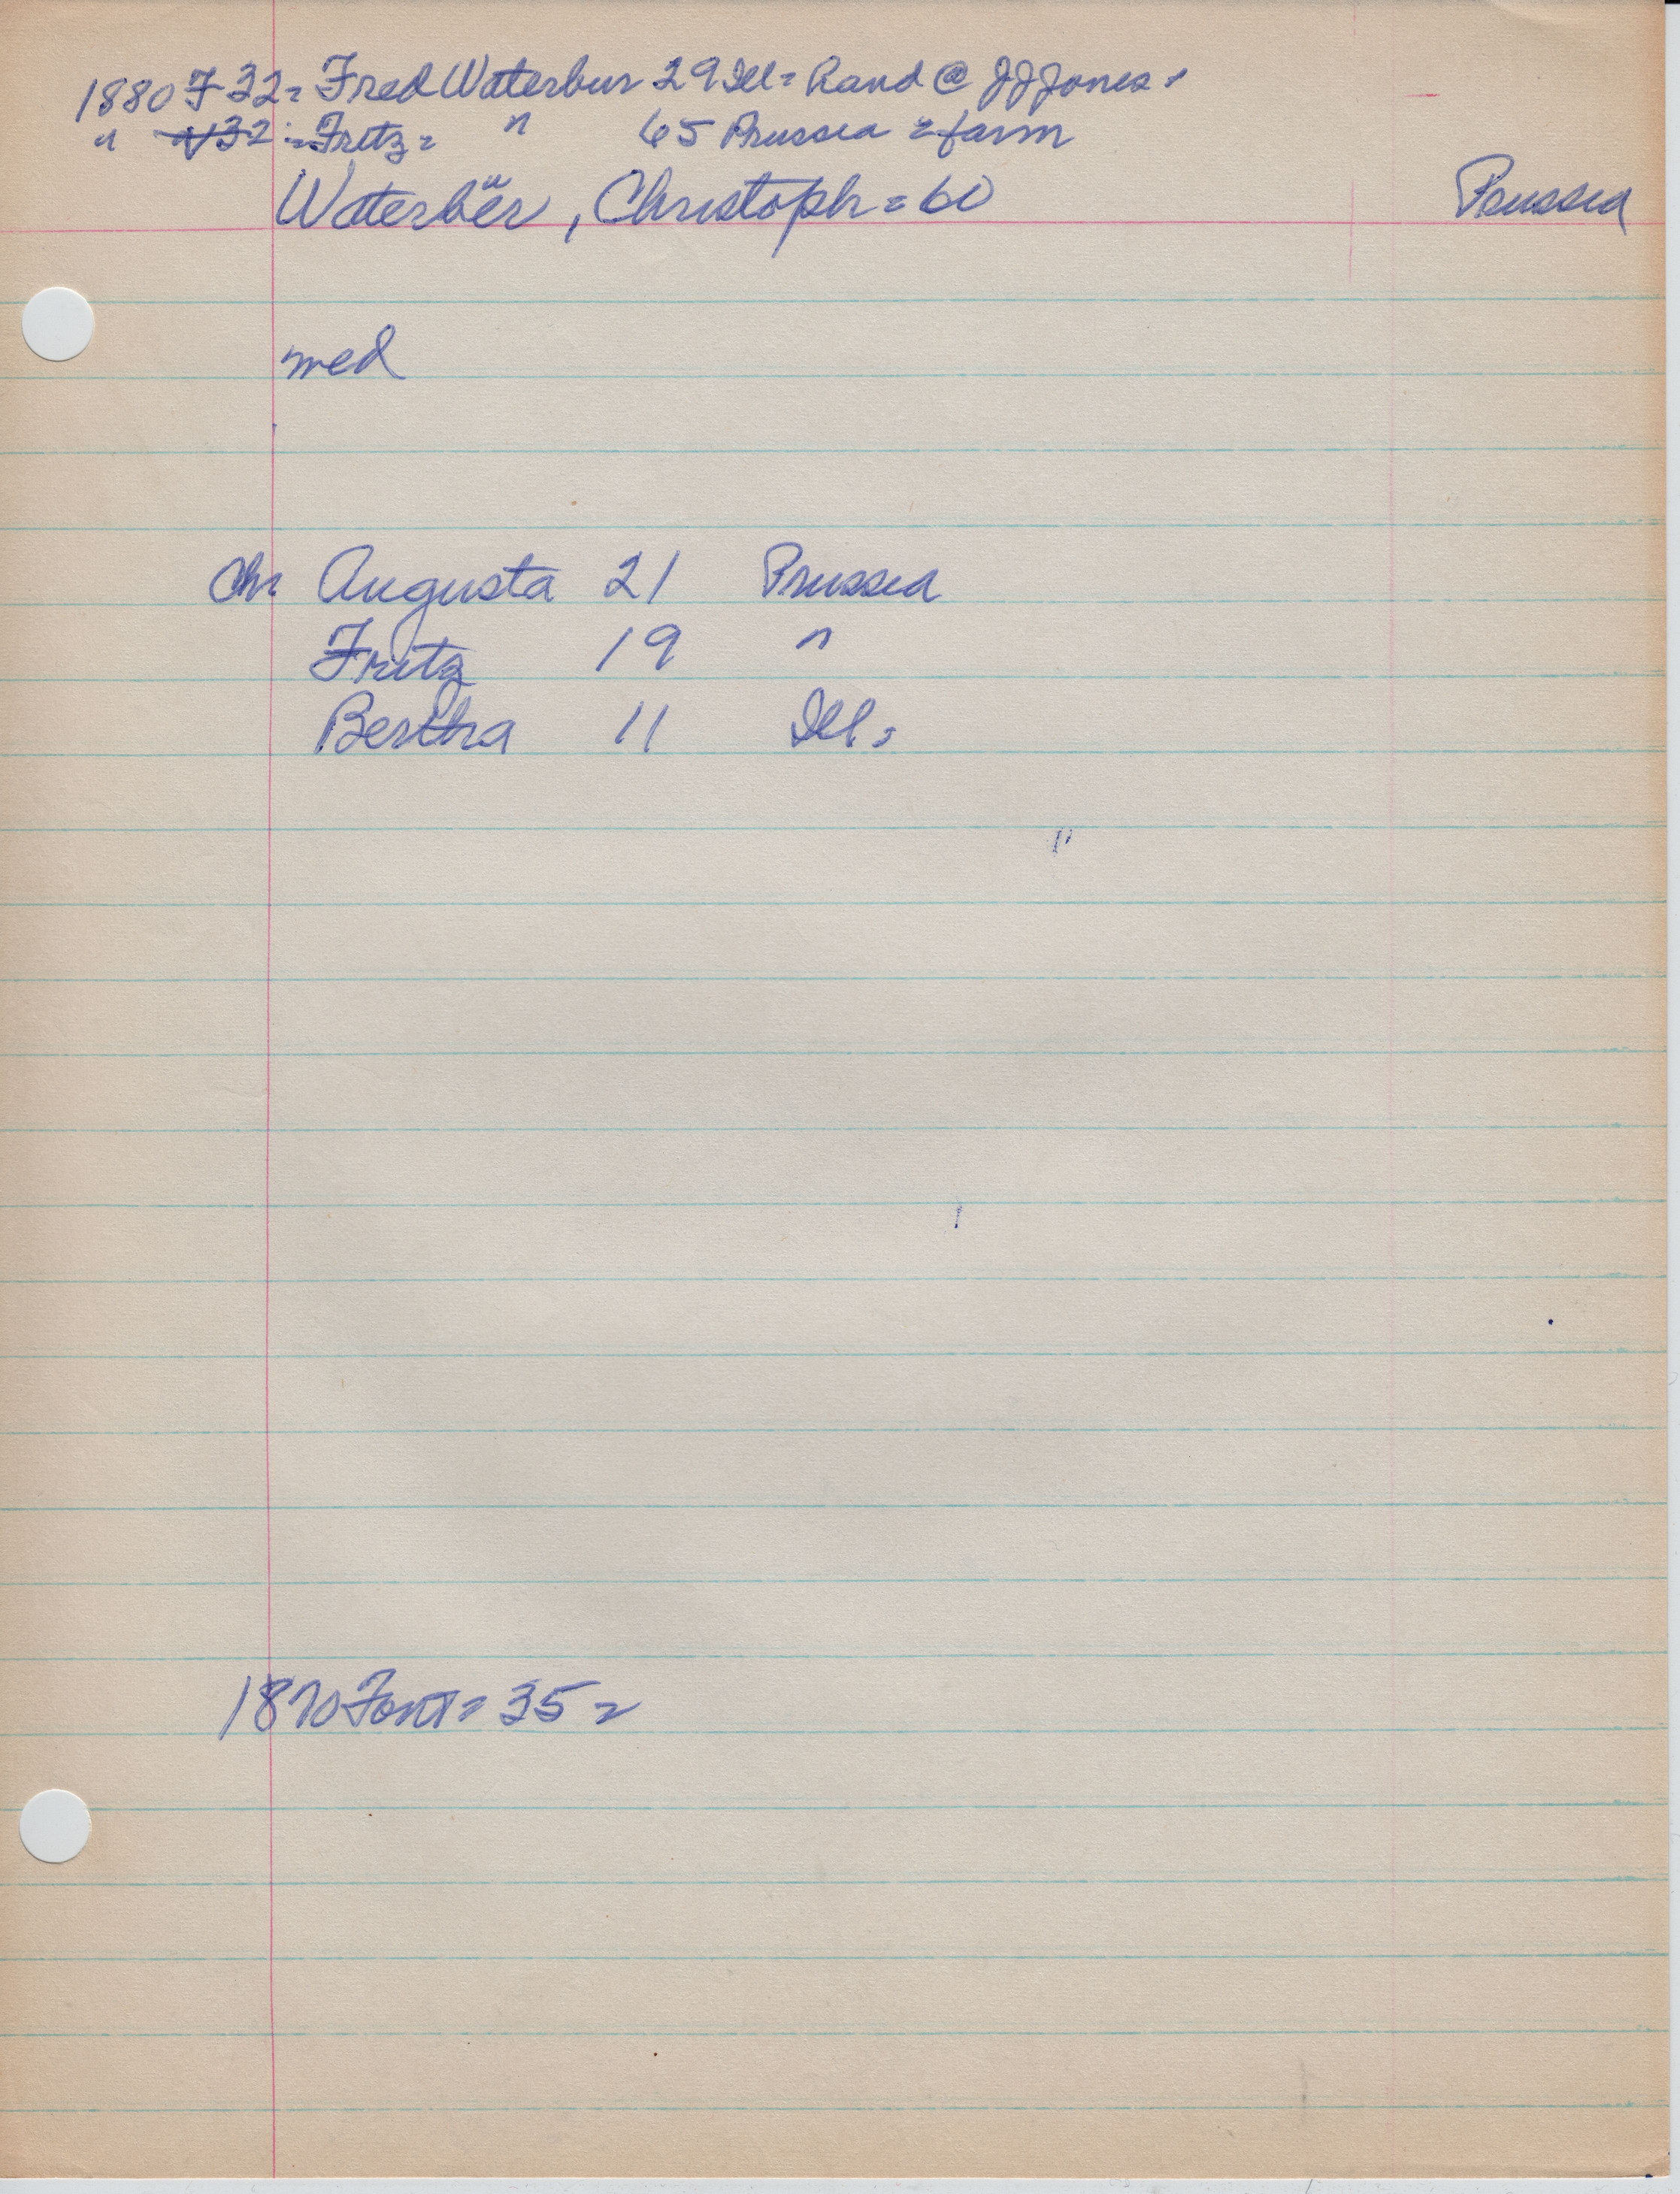 1880 F-32= Fred Waterbur 29 Ill= Rand @ JJ Jones=
" 32 = Fritz= " 65 Prussia = farm
Waterbër, Christoph = 60 Prussia
med
Chr Augusta 21 Prussia
Fritz 19 "
Bertha 11 Ill=
1870 Font= 35 =